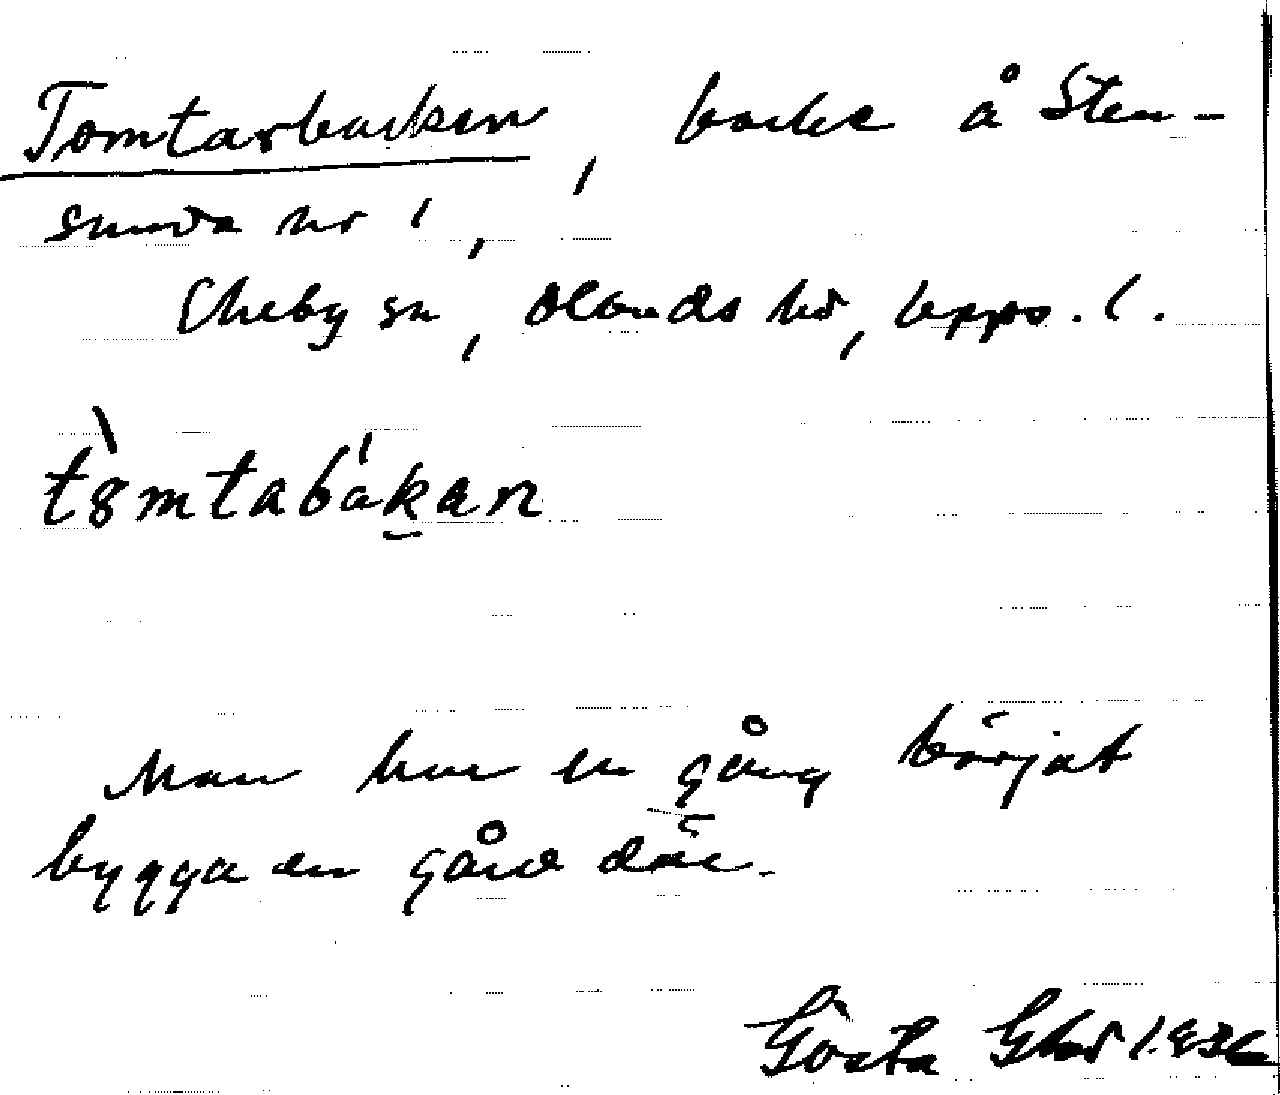 Tomtarbacken, backe å Sten-
sunda nr 1,
Ekeby sn, Olands hd, Upps. l.
tomtabakan
Man har en gång börjat
bygga en gård där.
Gösta